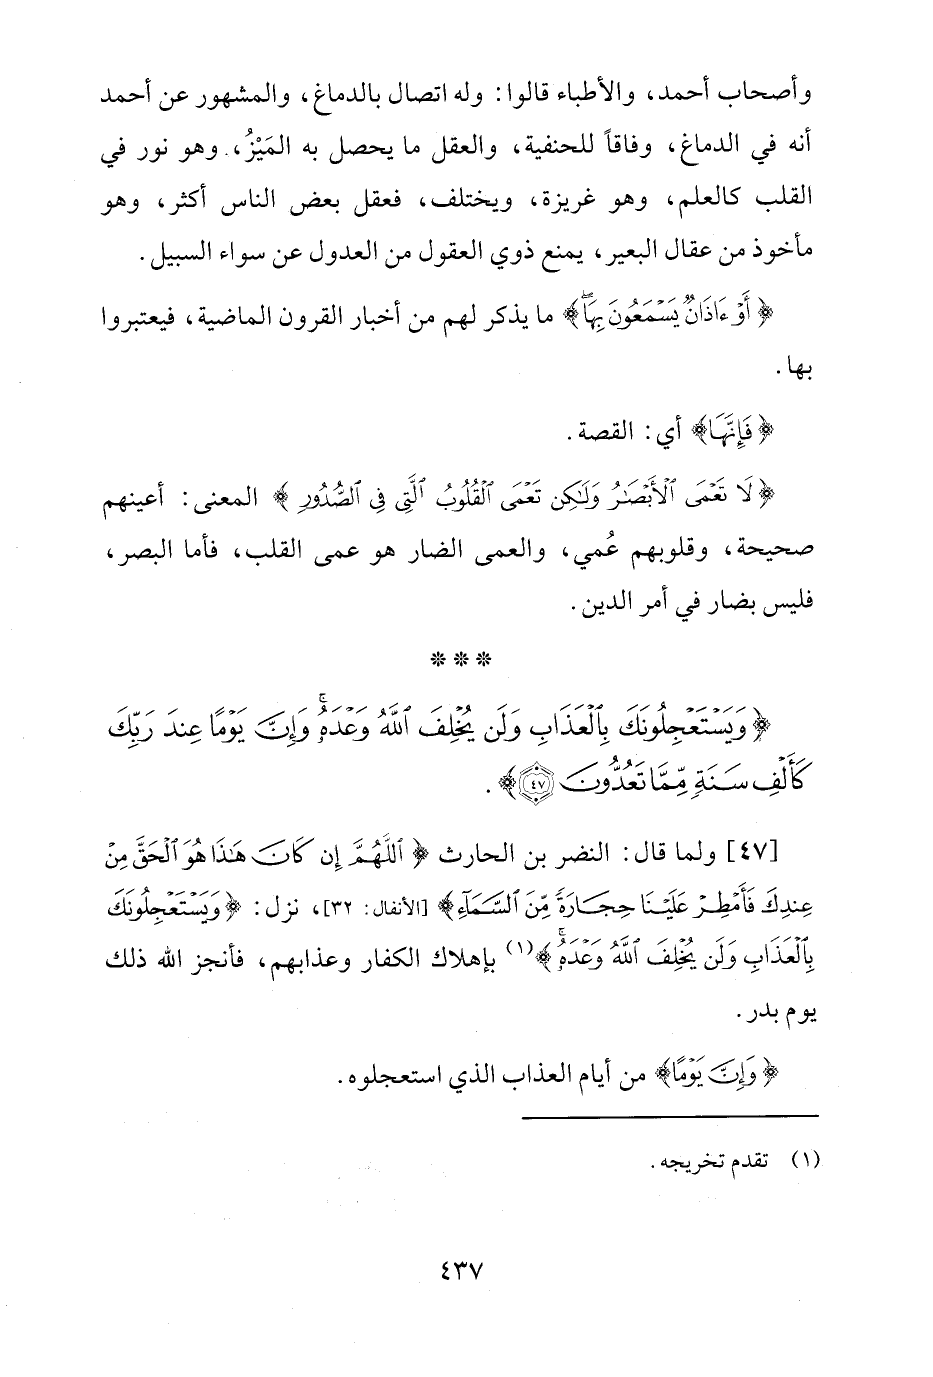 وأصحاب أحمد، والأطباء قالوا: وله اتصال بالدماغ، والمشهور عن أحمد
أنه في الدماغ، وفاقاً للحنفية، والعقل ما يحصل به المَيْزُ، وهو نور في
القلب كالعلم، وهو غريزة، ويختلف، فعقل بعض الناس أكثر، وهو
مأخوذ من عقال البعير، يمنع ذوي العقول من العدول عن سواء السبيل.
﴿أَوْ ءَاذَانٌ يَسْمَعُونَ بِهَاۖ﴾ ما يذكر لهم من أخبار القرون الماضية، فيعتبروا
بها.
﴿فَإِنَّهَا﴾ أي: القصة.
﴿لَا تَعْمَى ٱلْأَبْصَٰرُ وَلَٰكِن تَعْمَى ٱلْقُلُوبُ ٱلَّتِى فِى ٱلصُّدُورِ﴾ المعنى: أعينهم
صحيحة، وقلوبهم عُمي، والعمى الضار هو عمى القلب، فأما البصر،
فليس بضار في أمر الدين.
* * *
﴿وَيَسْتَعْجِلُونَكَ بِٱلْعَذَابِ وَلَن يُخْلِفَ ٱللَّهُ وَعْدَهُۥۚ وَإِنَّ يَوْمًا عِندَ رَبِّكَ
كَأَلْفِ سَنَةٍ مِّمَّا تَعُدُّونَ ٤٧﴾.
[٤٧] ولما قال: النضر بن الحارث ﴿ٱللَّهُمَّ إِن كَانَ هَٰذَا هُوَ ٱلْحَقَّ مِنْ
عِندِكَ فَأَمْطِرْ عَلَيْنَا حِجَارَةً مِّنَ ٱلسَّمَآءِ﴾ [الأنفال: ٣٢]، نزل: ﴿وَيَسْتَعْجِلُونَكَ
بِٱلْعَذَابِ وَلَن يُخْلِفَ ٱللَّهُ وَعْدَهُۥۚ﴾(١) بإهلاك الكفار وعذابهم، فأنجز الله ذلك
يوم بدر.
﴿وَإِنَّ يَوْمًا﴾ من أيام العذاب الذي استعجلوه.
(١) تقدم تخريجه.
٤٣٧